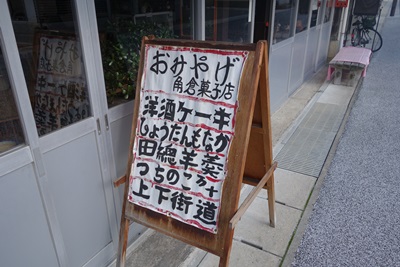 おみやげ
角倉菓子店
洋酒ケーキ
じょうだんもなか
田總羊羹
つちのこ
上下街道